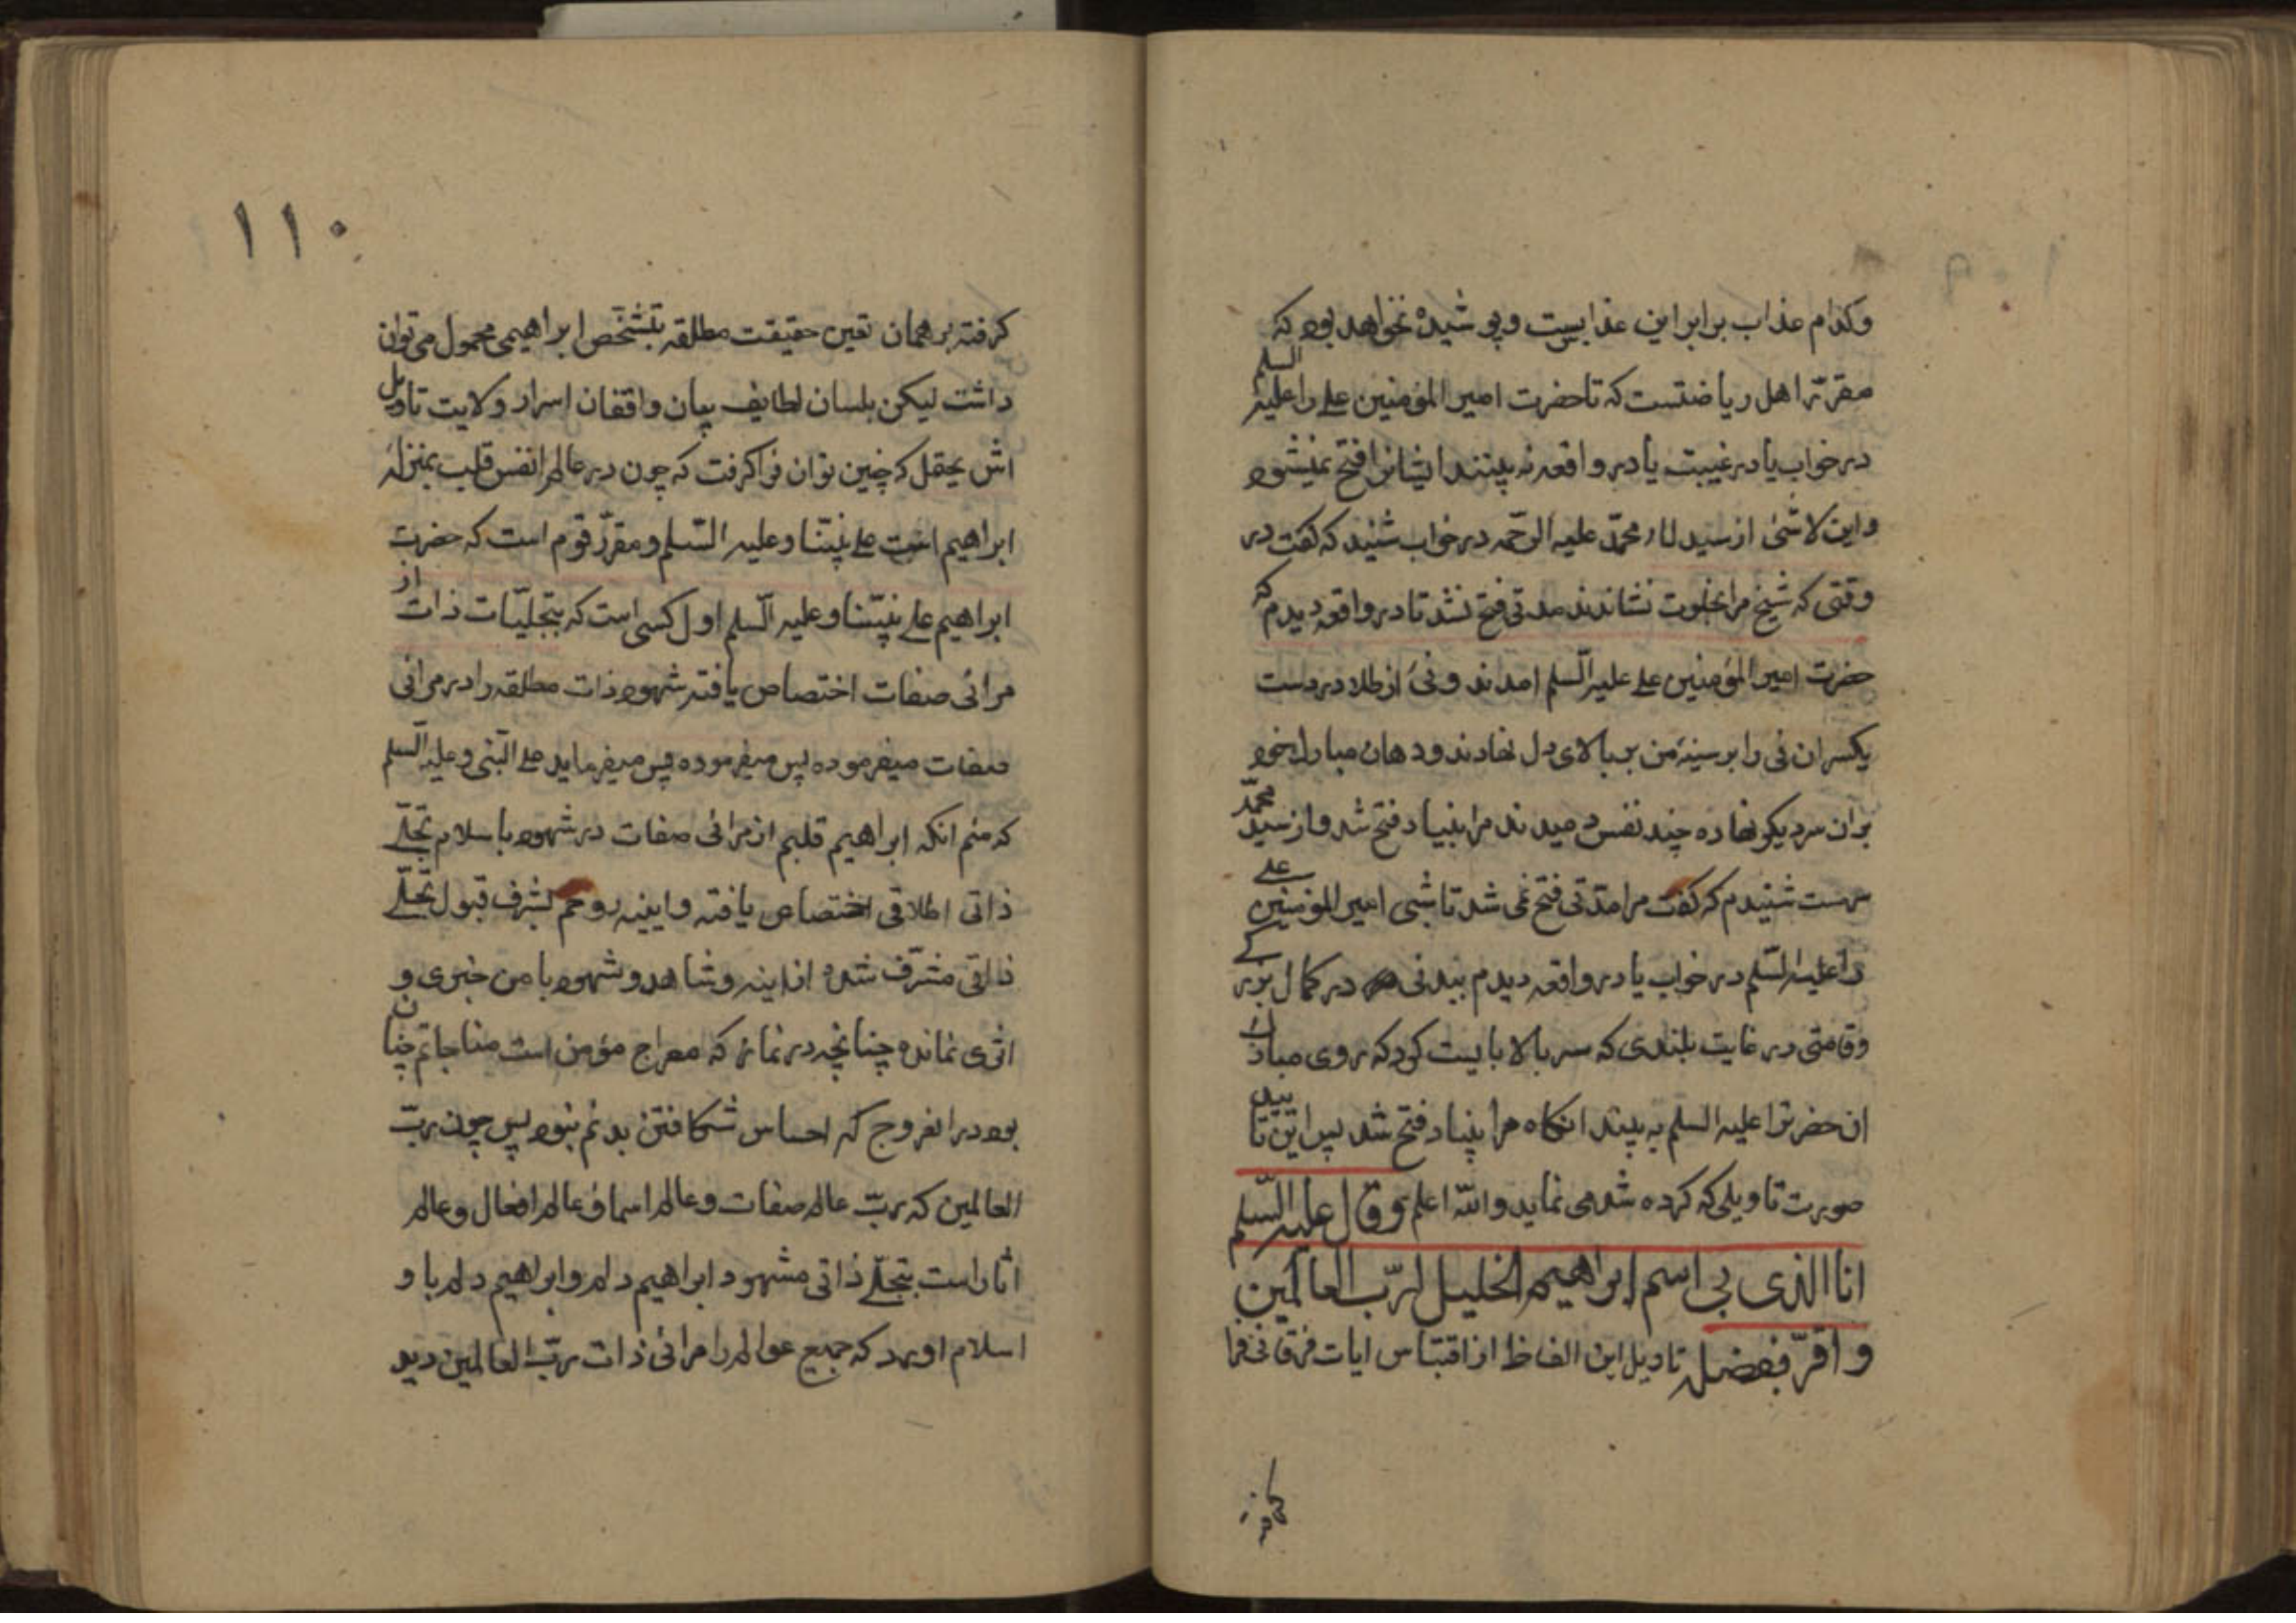 وکدام عذاب برابر این عذابیست و پوشیده نخواهد بود که
مقرّر اهل ریاضتست که تا حضرت امیر المؤمنین علی را علیه السلم
در خواب یا در غیبت یا در واقعه نه بینند ایشانرا فتح نمیشود
و این لاشئ از سید محمّد علیه الرحمه در خواب شنید که گفت در
وقتی که شیخ مرا بخلوت نشاندند مدتی فتح نشد تا در واقعه دیدم که
حضرت امیر المؤمنین علی علیه السلم امدند و نیٔ از طلا در دست
یکسر ان نی را بر سینهٔ من بر بالای دل نهادند و دهان مبارك خود
بران سر دیکر نهاده چند نفس دمیدند مرا بنیاد فتح شد و از سید محمّد
سرمست شنیدم که گفت مرا مدّتی فتح نمی شد تا شبی امیر المؤمنین علی
را علیه السّلم در خواب یا در واقعه دیدم ببدنی در کمال بزرکی
وقامتی در غایت بلندی که سر بالا بایست کرد که روی مبارك
ان حضرترا علیه السلم به بیند انکاه مرا بنیاد فتح شد پس این تایید
صورت تاویلی که کرده شد می نماید والله اعلم وقال علیه السّلم
انا الذی بی اسم ابراهیم الخلیل لربّ العالمین
و اقرّ بفضله تاویل این الفاظ از اقتباس ایات فرقانی فرا
١١٠
کرفته بر همان تعین حقیقت مطلقه بتشخّص ابراهیمی محمول می توان
داشت لیکن بلسان لطایف بیان واقفان اسرار ولایت تاویل
اش یحتمل که چنین توان فرا کرفت که چون در عالم انفس قلب بمنزلهٔ
ابراهیم است علی نبیّنا وعلیه السّلم و مقرّر قوم است که حضرت
ابراهیم علی نبیّنا وعلیه السّلم اول کسی است که بتجلیّات ذات از
مرائی صفات اختصاص یافته شهود ذات مطلقه را در مرائی
صفات میفرموده پس میفرموده پس میفرماید علی النّبی وعلیه السّلم
که منم انکه ابراهیم قلبم از مرائی صفات در شهود باسلام تجلّی
ذاتی اطلاقی اختصاص یافته و ایینه روحم بشرف قبول تجلّی
ذاتی مشرّف شده از ایینه وشاهد وشهود با من خبری و
اثری نمانده چنانچه در نماز که معراج مؤمن است مناجاتم چنان
بود در انعروج که احساس شکافتن بدنم نبود پس چون ربّ
العالمین که ربّ عالم صفات وعالم اسما و عالم افعال وعالم
اثار است بتجلّی ذاتی مشهود ابراهیم دلم و ابراهیم دلم با و
اسلام اورد که جمیع عوالم را مرائی ذات ربّ العالمین دید